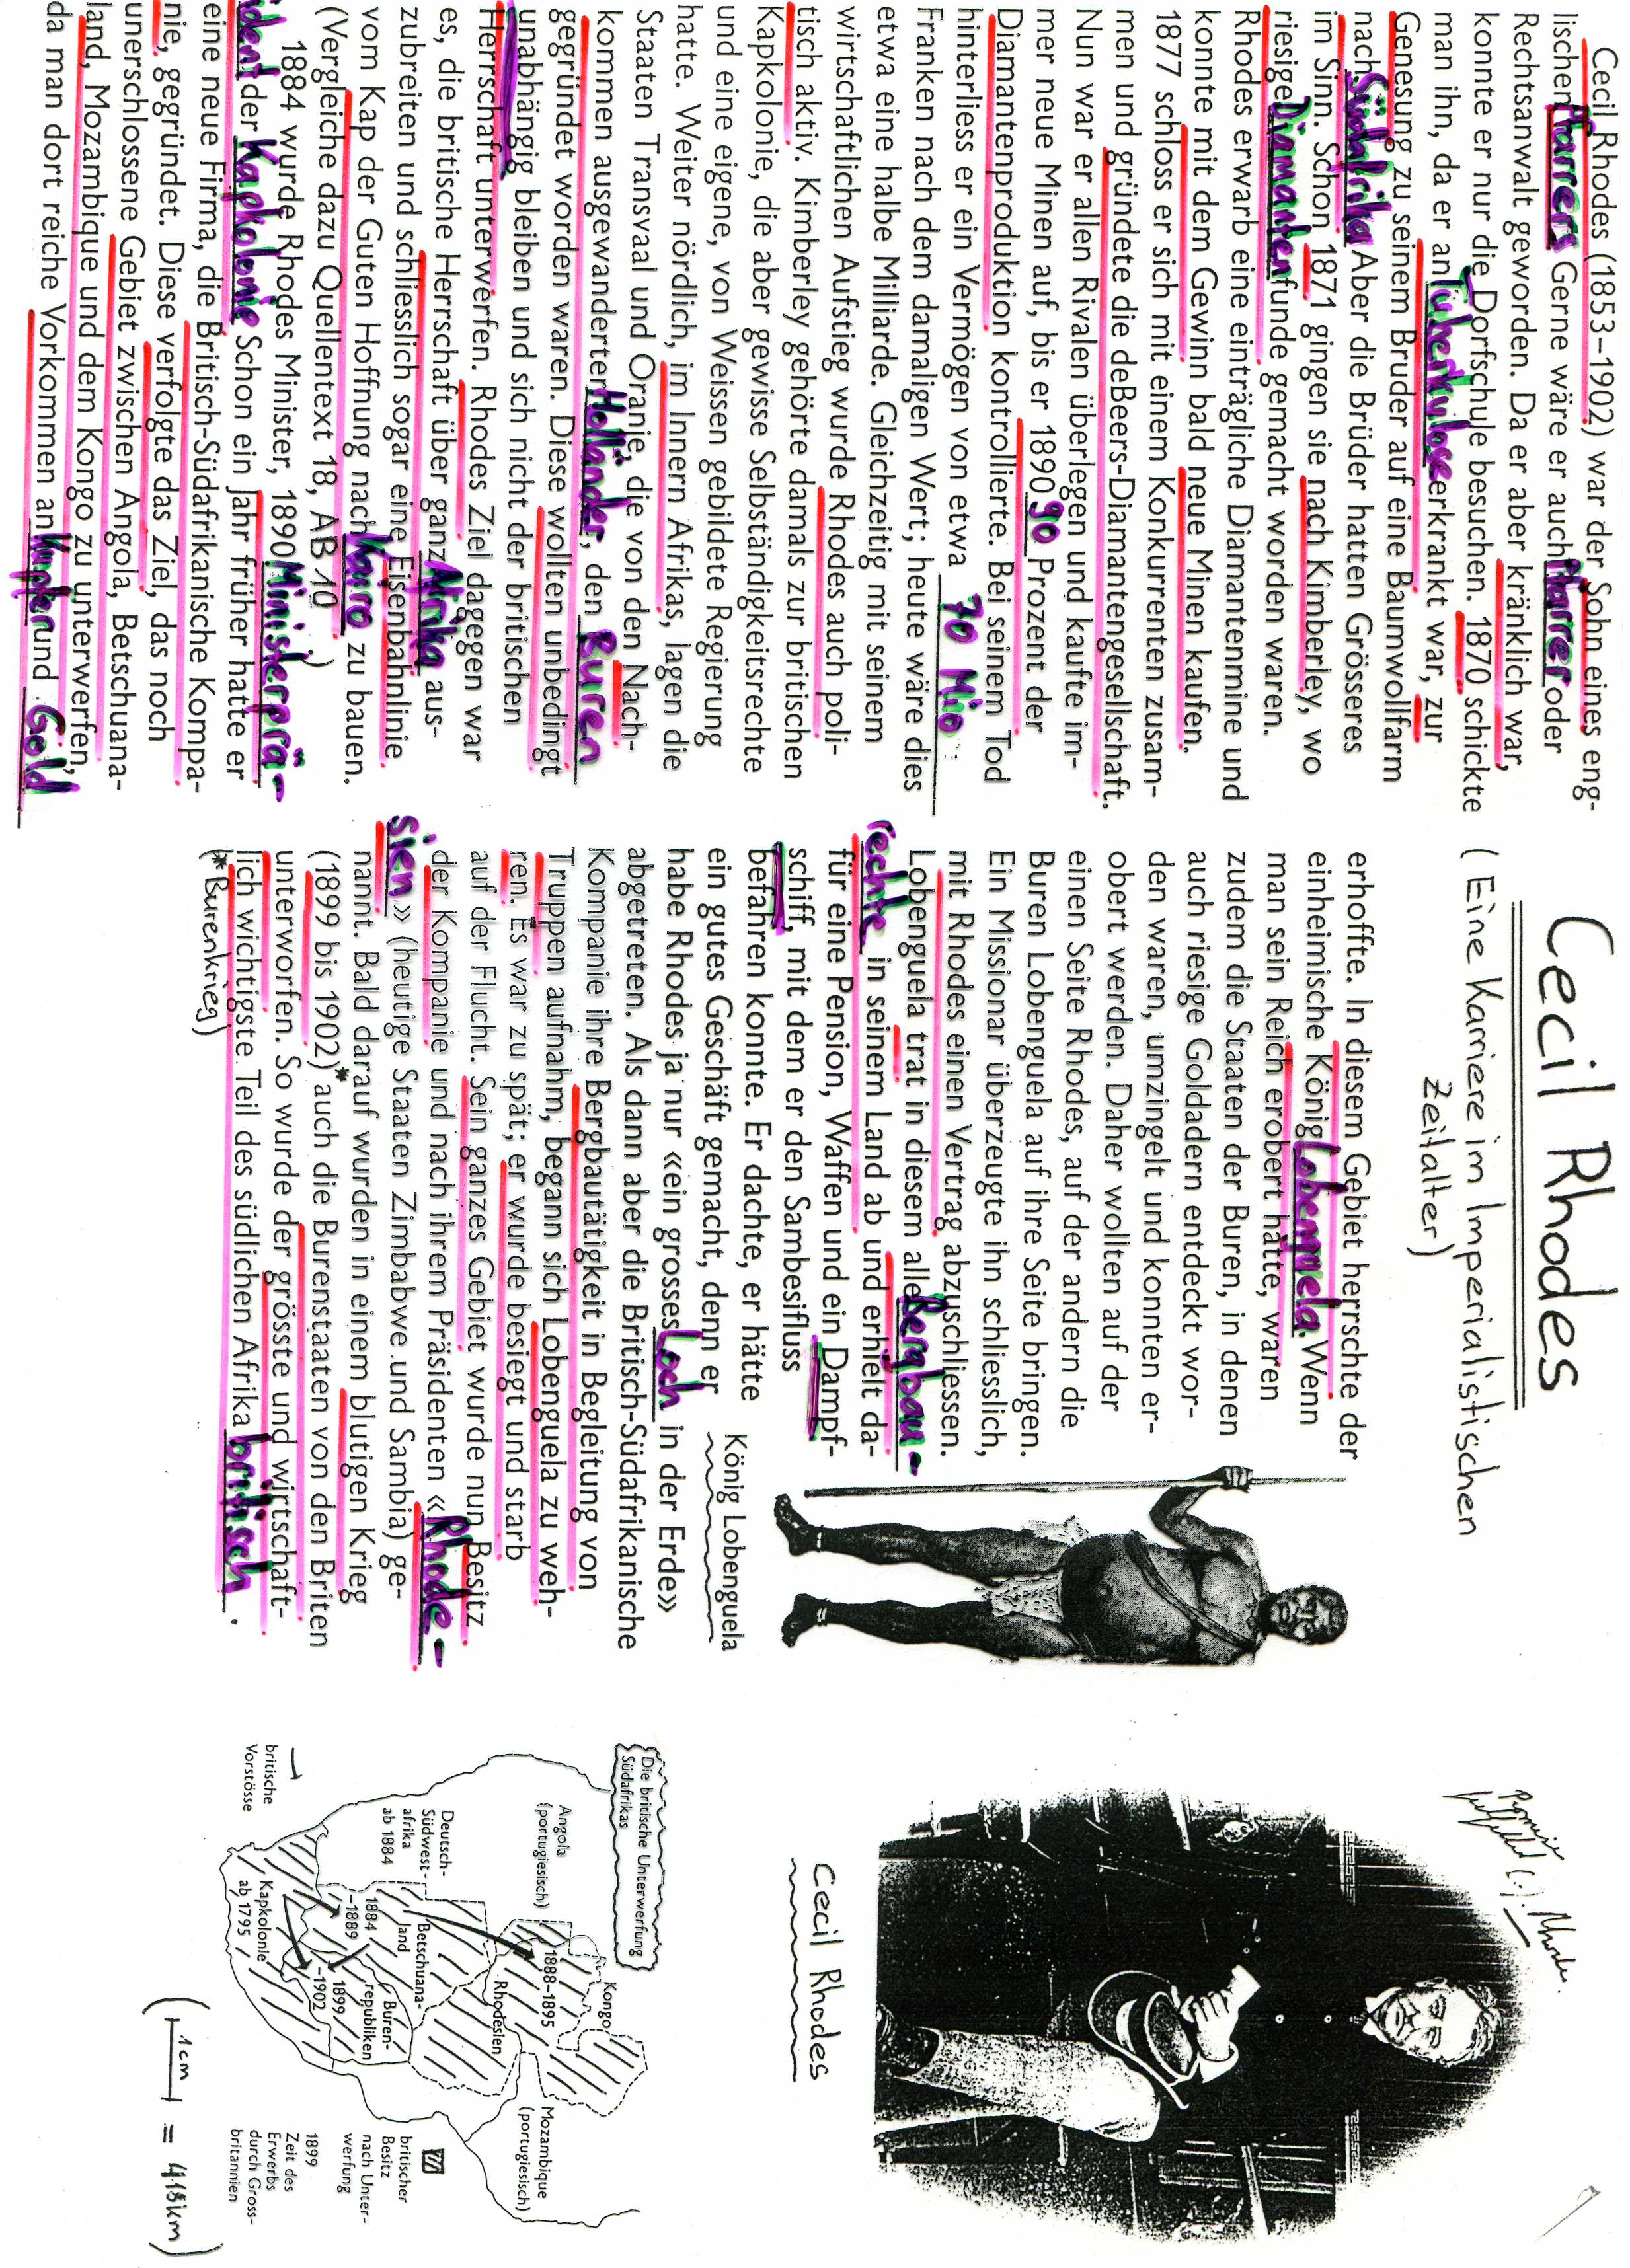 Cecil Rhodes
(Eine Karriere im Imperialistischen
Zeitalter)
Cecil Rhodes (1853–1902) war der Sohn eines eng-
lischen Pfarrers Gerne wäre er auch Pfarrer oder
Rechtsanwalt geworden. Da er aber kränklich war,
konnte er nur die Dorfschule besuchen. 1870 schickte
man ihn, da er an Tuberkulose erkrankt war, zur
Genesung zu seinem Bruder auf eine Baumwollfarm
nach Südafrika Aber die Brüder hatten Grösseres
im Sinn. Schon 1871 gingen sie nach Kimberley, wo
riesige Diamantenfunde gemacht worden waren.
Rhodes erwarb eine einträgliche Diamantenmine und
konnte mit dem Gewinn bald neue Minen kaufen.
1877 schloss er sich mit einem Konkurrenten zusam-
men und gründete die deBeers-Diamantengesellschaft.
Nun war er allen Rivalen überlegen und kaufte im-
mer neue Minen auf, bis er 1890 90 Prozent der
Diamantenproduktion kontrollierte. Bei seinem Tod
hinterliess er ein Vermögen von etwa 70 Mio.
Franken nach dem damaligen Wert; heute wäre dies
etwa eine halbe Milliarde. Gleichzeitig mit seinem
wirtschaftlichen Aufstieg wurde Rhodes auch poli-
tisch aktiv. Kimberley gehörte damals zur britischen
Kapkolonie, die aber gewisse Selbständigkeitsrechte
und eine eigene, von Weissen gebildete Regierung
hatte. Weiter nördlich, im Innern Afrikas, lagen die
Staaten Transvaal und Oranje, die von den Nach-
kommen ausgewanderter Holländer, den Buren
gegründet worden waren. Diese wollten unbedingt
unabhängig bleiben und sich nicht der britischen
Herrschaft unterwerfen. Rhodes Ziel dagegen war
es, die britische Herrschaft über ganz Afrika aus-
zubreiten und schliesslich sogar eine Eisenbahnlinie
vom Kap der Guten Hoffnung nach Kairo zu bauen.
(Vergleiche dazu Quellentext 18, AB 10)
1884 wurde Rhodes Minister, 1890 Ministerprä-
sident der Kapkolonie Schon ein Jahr früher hatte er
eine neue Firma, die Britisch-Südafrikanische Kompa-
nie, gegründet. Diese verfolgte das Ziel, das noch
unerschlossene Gebiet zwischen Angola, Betschuana-
land, Mozambique und dem Kongo zu unterwerfen,
da man dort reiche Vorkommen an Kupfer und Gold
erhoffte. In diesem Gebiet herrschte der
einheimische König Lobenguela. Wenn
man sein Reich erobert hatte, waren
zudem die Staaten der Buren, in denen
auch riesige Goldadern entdeckt wor-
den waren, umzingelt und konnten er-
obert werden. Daher wollten auf der
einen Seite Rhodes, auf der andern die
Buren Lobenguela auf ihre Seite bringen.
Ein Missionar überzeugte ihn schliesslich,
mit Rhodes einen Vertrag abzuschliessen.
Lobenguela trat in diesem alle Bergbau-
rechte in seinem Land ab und erhielt da-
für eine Pension, Waffen und ein Dampf-
schiff, mit dem er den Sambesifluss
befahren konnte. Er dachte, er hätte
ein gutes Geschäft gemacht, denn er
habe Rhodes ja nur «ein grosses Loch in der Erde»
abgetreten. Als dann aber die Britisch-Südafrikanische
Kompanie ihre Bergbautätigkeit in Begleitung von
Truppen aufnahm, begann sich Lobenguela zu weh-
ren. Es war zu spät; er wurde besiegt und starb
auf der Flucht. Sein ganzes Gebiet wurde nun Besitz
der Kompanie und nach ihrem Präsidenten «Rhode-
sien» (heutige Staaten Zimbabwe und Sambia) ge-
nannt. Bald darauf wurden in einem blutigen Krieg
(1899 bis 1902)* auch die Burenstaaten von den Briten
unterworfen. So wurde der grösste und wirtschaft-
lich wichtigste Teil des südlichen Afrika britisch.
(*Burenkrieg)
König Lobenguela
Cecil Rhodes
Die britische Unterwerfung
Südafrikas
Angola
(portugiesisch)
Kongo
1888–1895
Mozambique
(portugiesisch)
Rhodesien
Deutsch-
Südwest-
afrika
ab 1884
Betschuana-
land
1884
–1889
Buren-
republiken
1899
–1902
Kapkolonie
ab 1795
britische
Vorstösse
britischer
Besitz
nach Unter-
werfung
1899
Zeit des
Erwerbs
durch Gross-
britannien
(1cm = 418km)